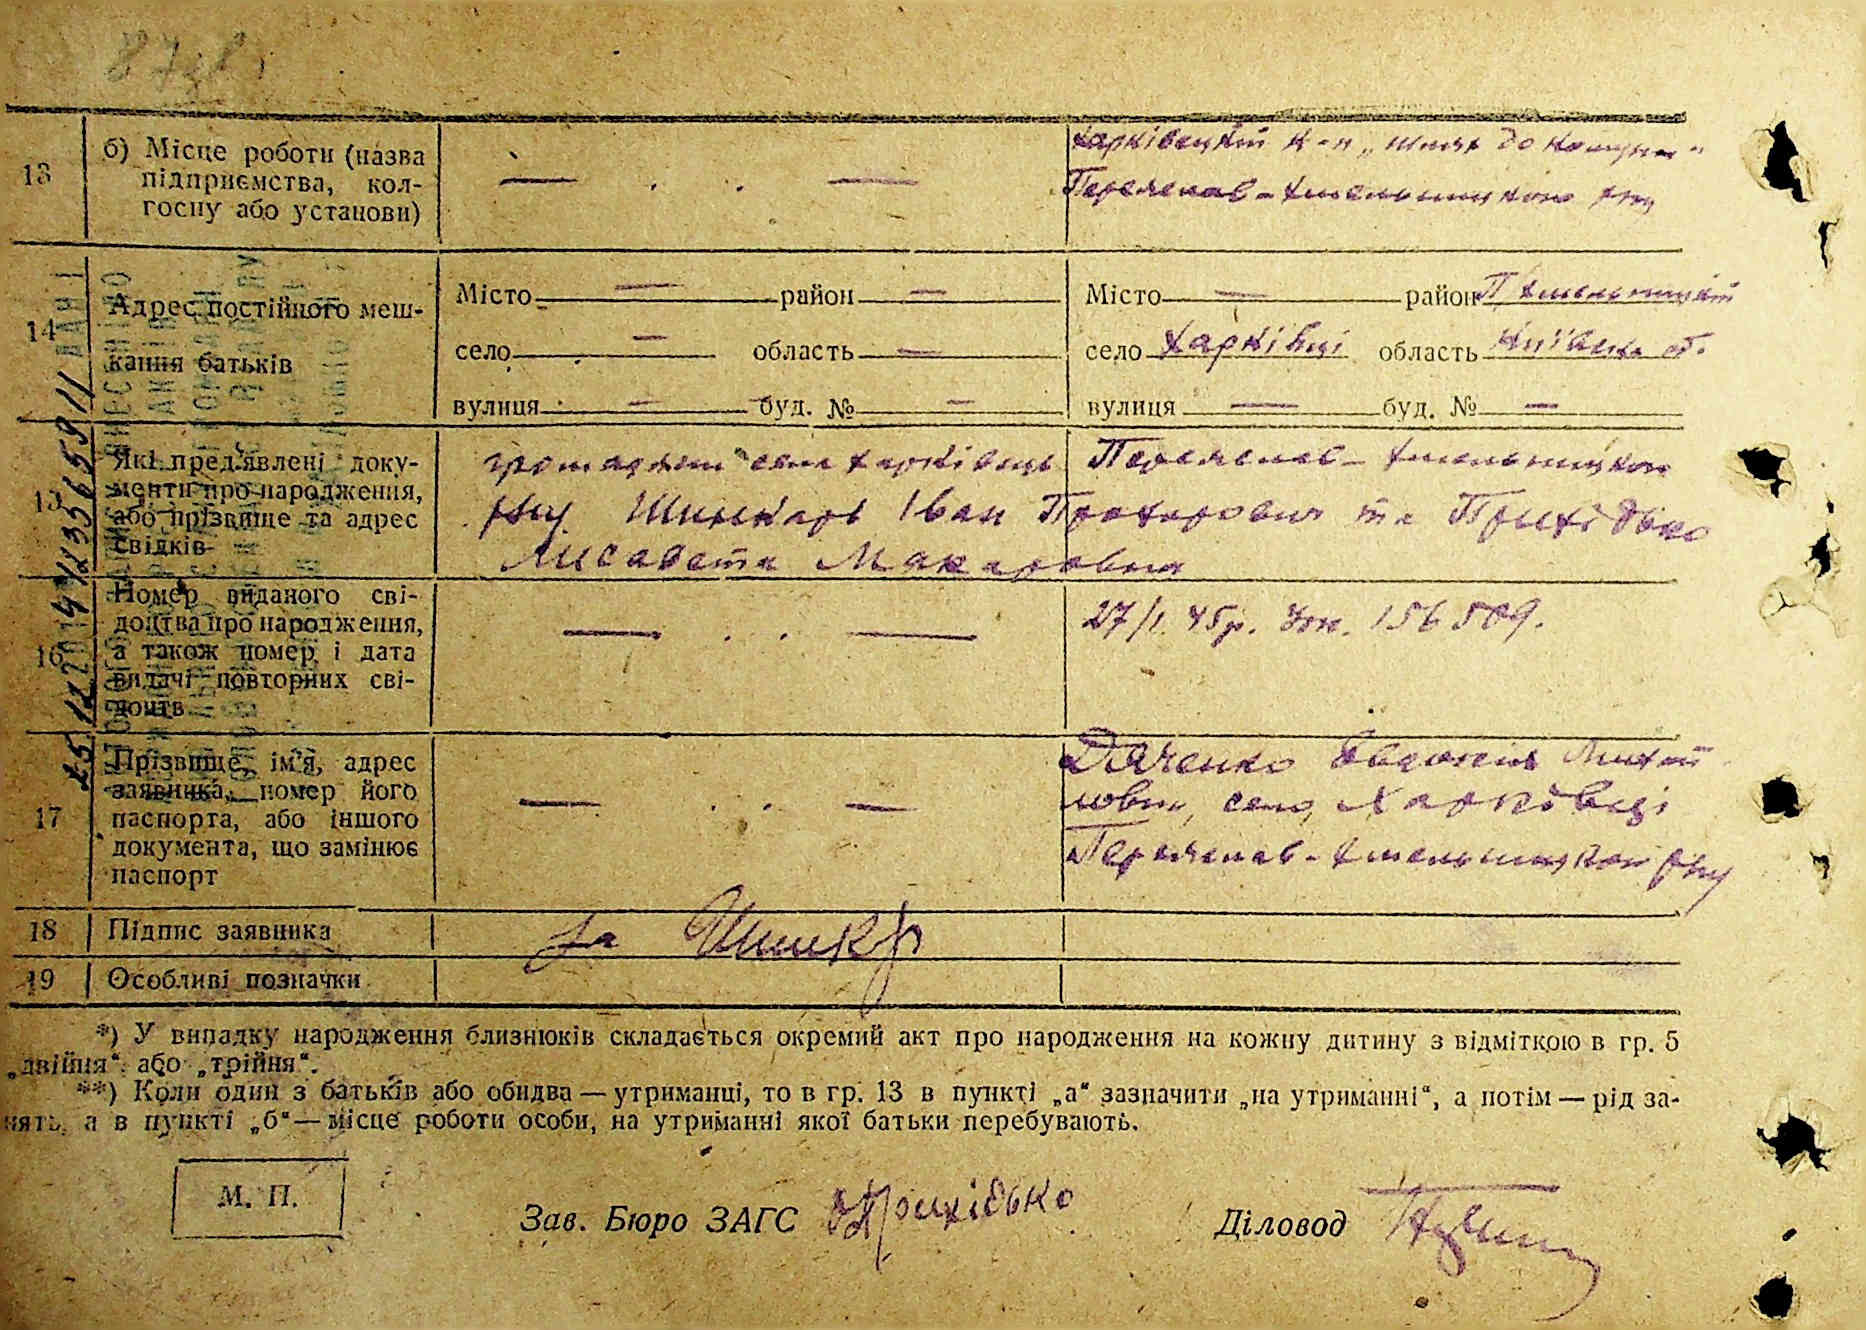 13
б) Місце роботи (назва
підприємства, кол-
госпу або установи)
— . . —
Харківецкий к-п „шлях до комуни"
Переяслав-Хмельницкого р-ну
14
Адрес постійного меш-
кання батьків
Місто — район —
село — область —
вулиця — буд. № —
Місто — район П Хмельницкий
село Харківці область Київська об.
вулиця — буд. № —
15
Які пред'явлені доку-
менти про народження,
або прізвище та адрес
свідків
громадяни села Харківець Переяслав-Хмельницкого
р-ну Шинкарь Іван Прохорович та Прихідько
Лисавета Макаровна
16
Номер виданого сві-
доцтва про народження,
а також номер і дата
видачі повторних сві-
доцтв
— . . —
27/I 45р. 156509.
17
Прізвище, ім'я, адрес
заявника, номер його
паспорта, або іншого
документа, що замінює
паспорт
— . . —
Дяченко Евдокія Михай
ловна, село Харківці
Переяслав-Хмельницкого р-ну
18
Підпис заявника
за Шинкар
19
Особливі позначки
*) У випадку народження близнюків складається окремий акт про народження на кожну дитину з відміткою в гр. 5
„двійня" або „трійня".
**) Коли один з батьків або обидва — утриманці, то в гр. 13 в пункті „а" зазначити „на утриманні", а потім — рід за-
нять, а в пункті „б" — місце роботи особи, на утриманні якої батьки перебувають.
М. П.
Зав. Бюро ЗАГС Прихідько
Діловод